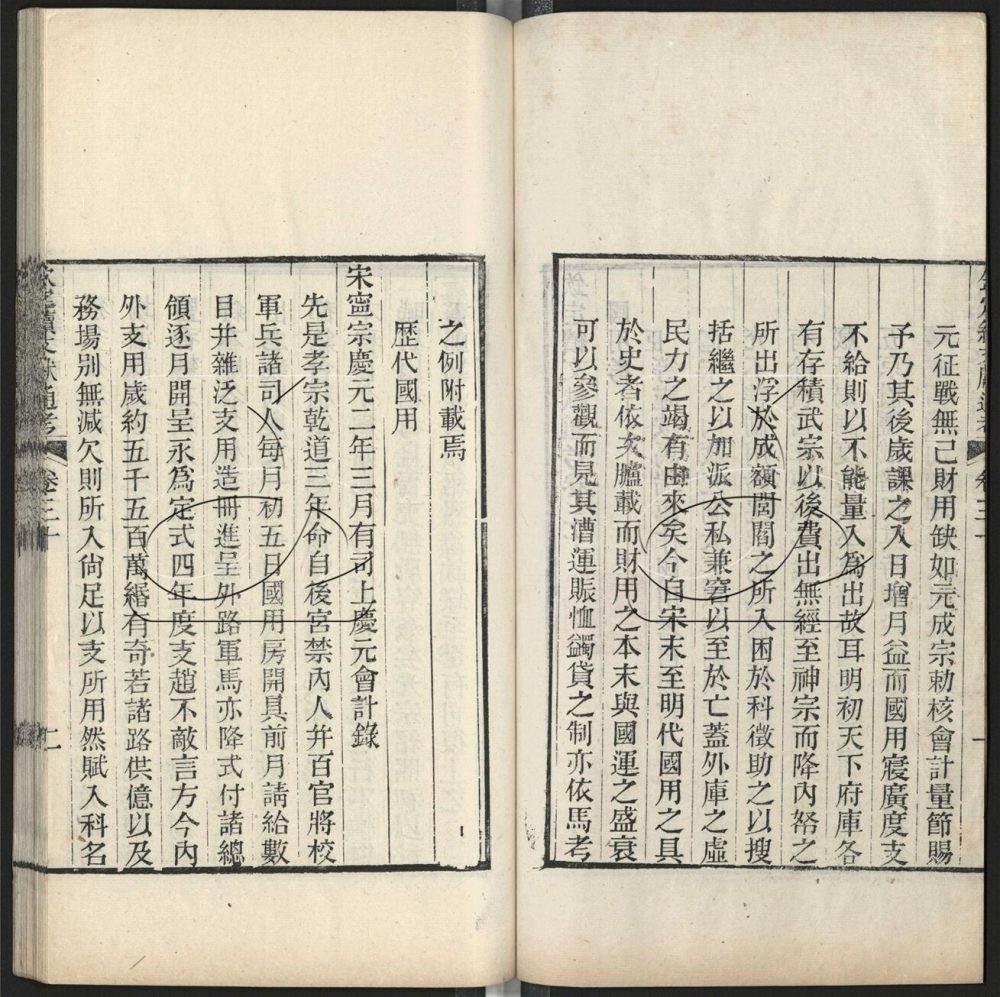 元征戰無己財用缺如元成宗勅核會計量節賜
予乃其後歲課之入日增月益而國用寖廣度支
不給則以不能量入為出故耳明初天下府庫各
有存積武宗以後費出無經至神宗而降內帑之
所出浮於成額閭閻之所入困於科徵助之以搜
括繼之以加派公私兼窘以至於亡蓋外庫之虛
民力之竭有由來矣今自宋末至明代國用之具
於史者依次臚載而財用之本末與國運之盛衰
可以參觀而見其漕運賑恤蠲貸之制亦依馬考
之例附載焉
歷代國用
宋寧宗慶元二年三月有司上慶元會計錄
先是孝宗乾道三年命自後宮禁內人幷百官將校
軍兵諸司人每月初五日國用房開具前月請給數
目幷雜泛支用造冊進呈外路軍馬亦降式付諸總
領逐月開呈永為定式四年度支趙不敵言方今內
外支用歲約五千五百萬緡有奇若諸路供億以及
務場別無減欠則所入尙足以支所用然賦入科名
欽定續文獻通考
卷三十